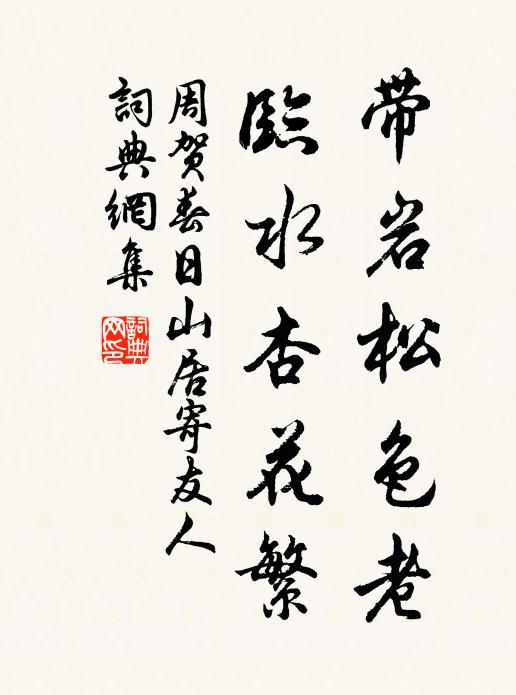 带岩松色老
臨水杏花繁
周贺春日山居寄友人
詞典網集
詞典网印